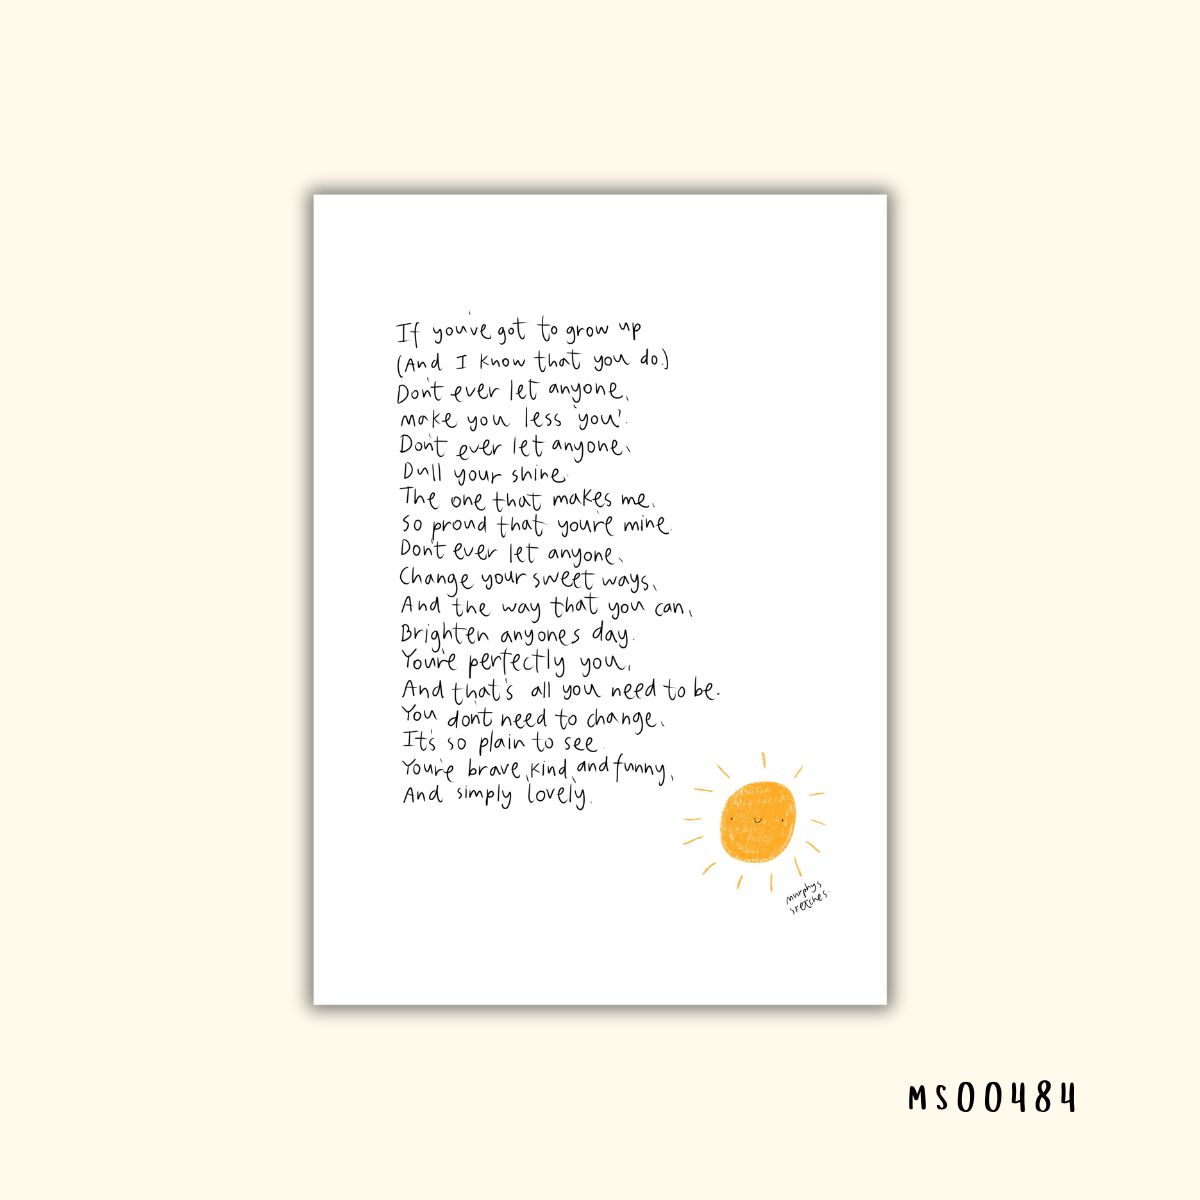 If you've got to grow up
(And I know that you do.)
Don't ever let anyone,
make you less 'you'.
Don't ever let anyone,
Dull your shine.
The one that makes me,
so proud that you're mine.
Don't ever let anyone,
Change your sweet ways,
And the way that you can,
Brighten anyone's day.
You're perfectly you,
And that's all you need to be.
You don't need to change,
It's so plain to see.
You're brave, kind, and funny,
And simply lovely.
murphys
sketches.
MS00484